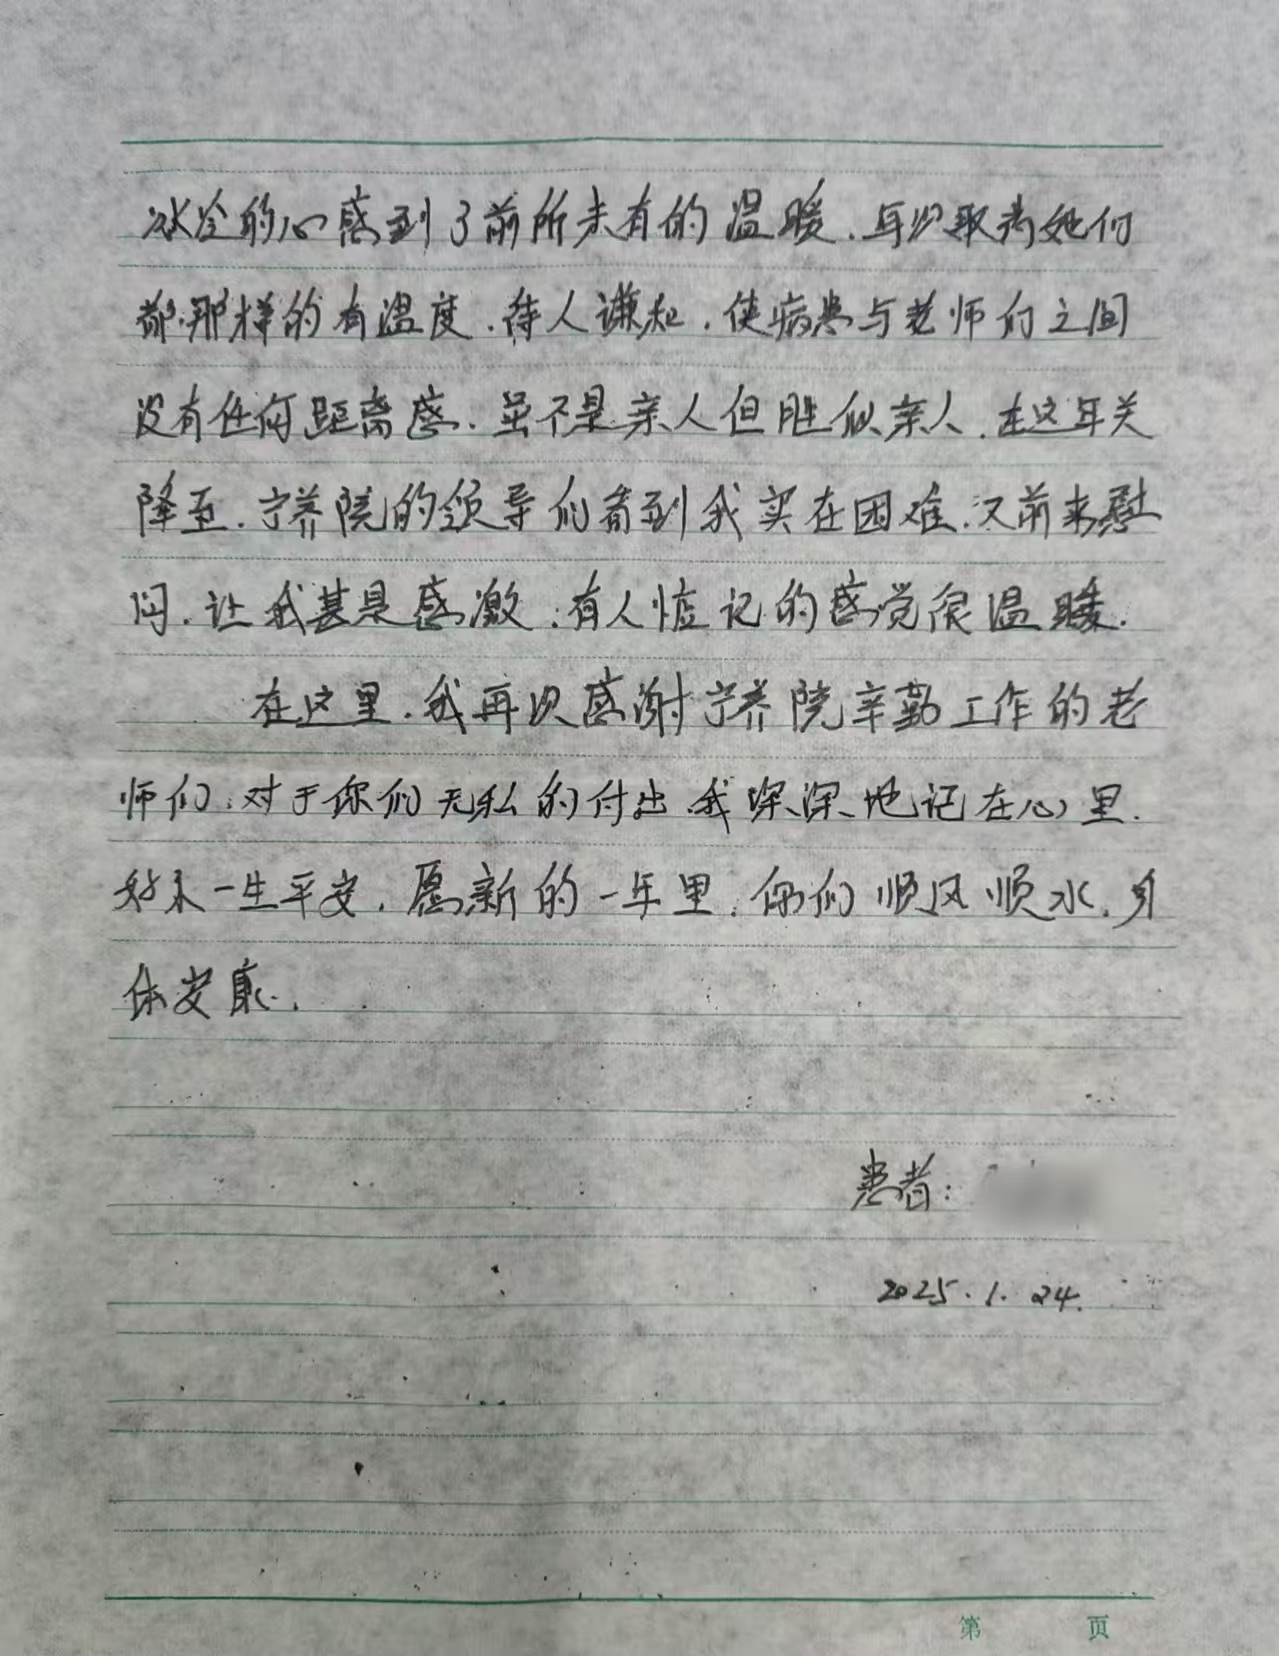 冰冷的心感到了前所未有的温暖.每次取药她们
都那样的有温度.待人谦和.使病患与老师们之间
没有任何距离感.虽不是亲人但胜似亲人.在这年关
降至.宁养院的领导们看到我实在困难.又前来慰
问.让我甚是感激.有人惦记的感觉很温暖.
在这里.我再次感谢宁养院辛勤工作的老
师们.对于你们无私的付出.我深深地记在心里.
好人一生平安.愿新的一年里.你们顺风顺水.身
体安康.
患者:
2025.1.24.
第 页